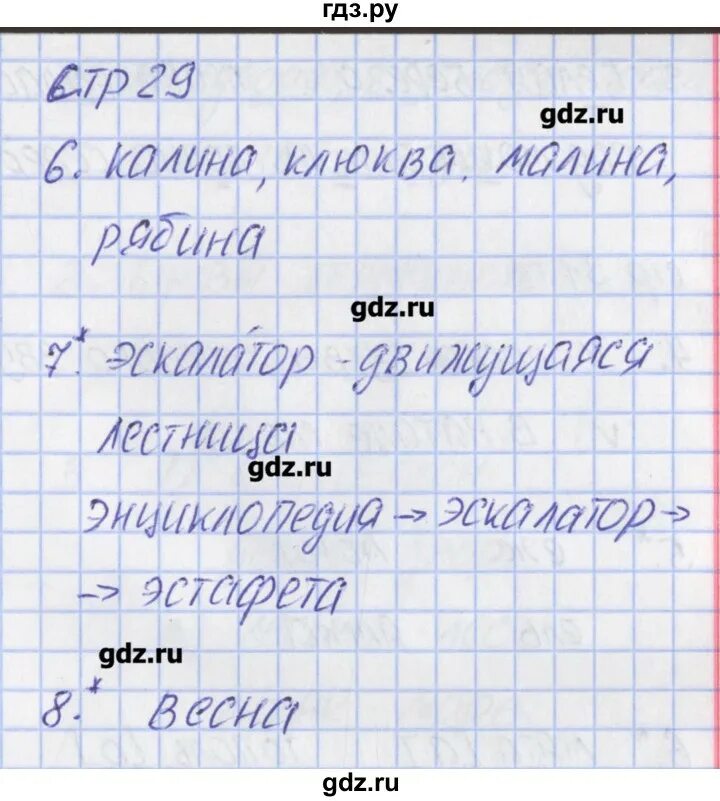 гдз.ру
Стр 29
gdz.ru
6. калина, клюква, малина,
рябина
gdz.ru
7.* эскала́тор - движущаяся
лестница
gdz.ru
энциклопедия → эскалатор →
→ эстафета
gdz.ru
8.* весна
gdz.ru